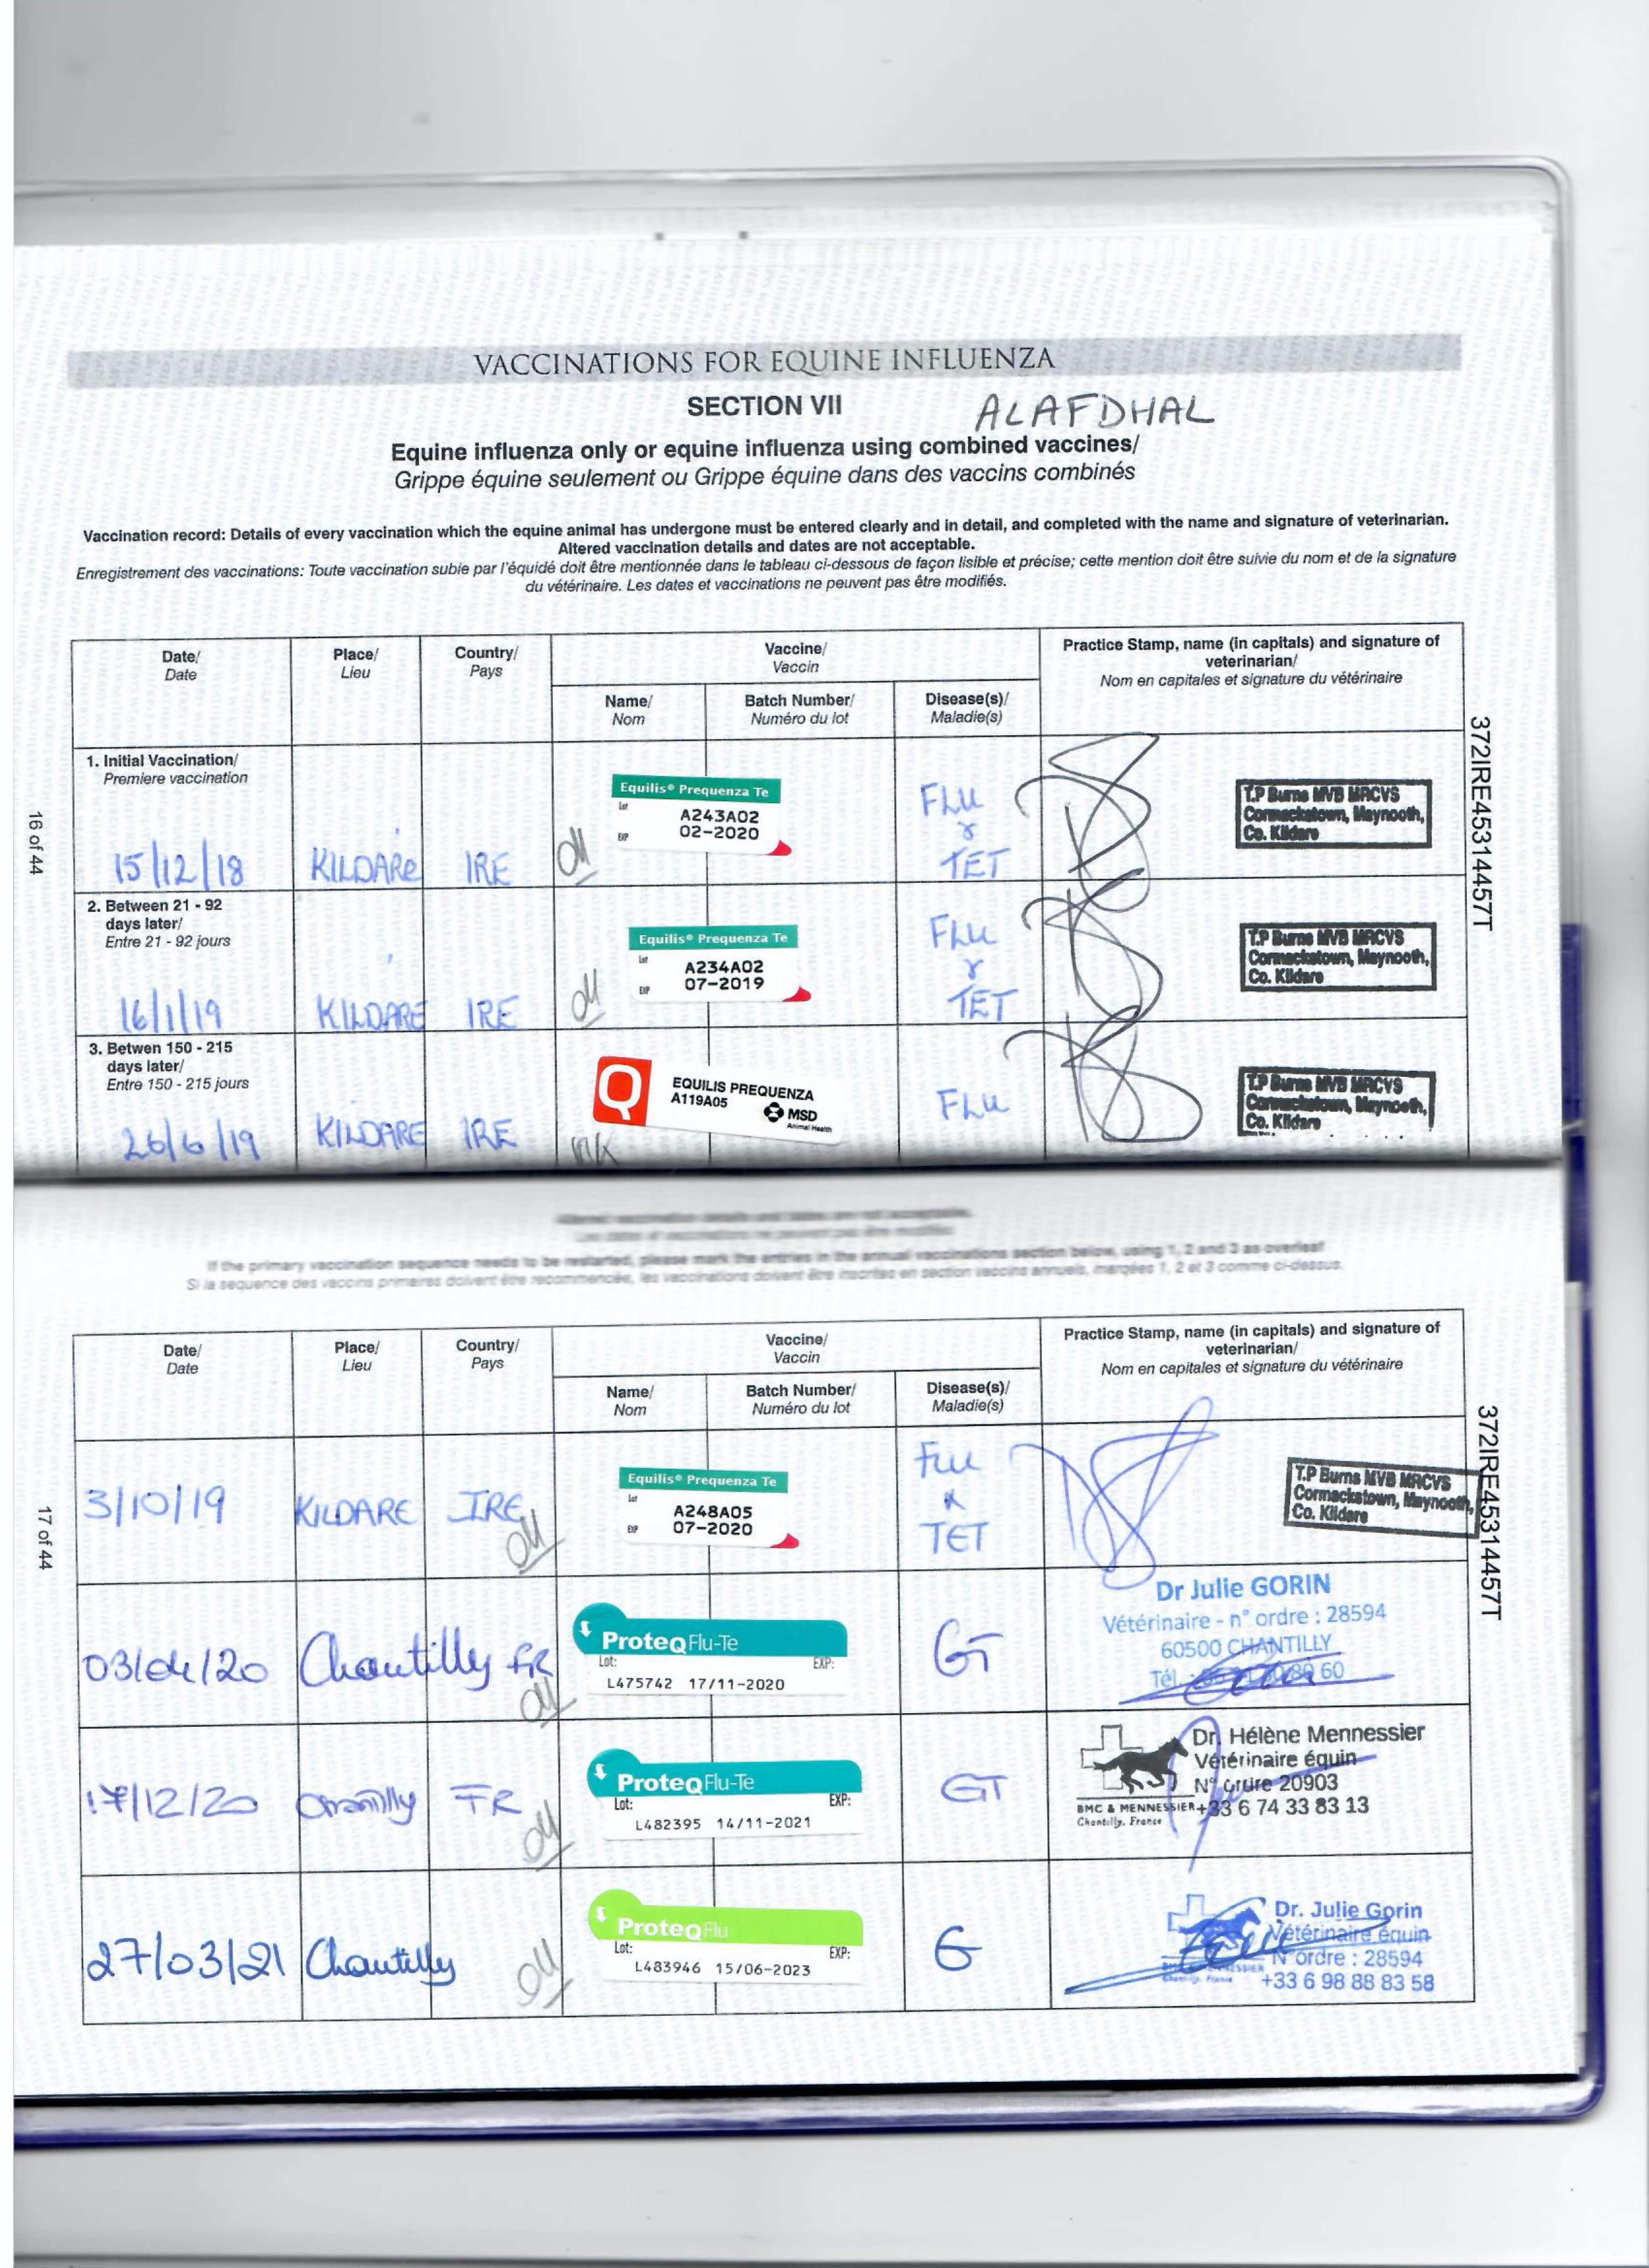 VACCINATIONS FOR EQUINE INFLUENZA
SECTION VII
ALAFDHAL
Equine influenza only or equine influenza using combined vaccines/
Grippe équine seulement ou Grippe équine dans des vaccins combinés
Vaccination record: Details of every vaccination which the equine animal has undergone must be entered clearly and in detail, and completed with the name and signature of veterinarian.
Altered vaccination details and dates are not acceptable.
Enregistrement des vaccinations: Toute vaccination subie par l'équidé doit être mentionnée dans le tableau ci-dessous de façon lisible et précise; cette mention doit être suivie du nom et de la signature
du vétérinaire. Les dates et vaccinations ne peuvent pas être modifiés.
Date/
Date
Place/
Lieu
Country/
Pays
Vaccine/
Vaccin
Name/
Nom
Batch Number/
Numéro du lot
Disease(s)/
Maladie(s)
Practice Stamp, name (in capitals) and signature of
veterinarian/
Nom en capitales et signature du vétérinaire
1. Initial Vaccination/
Premiere vaccination
15/12/18
KILDARE
IRE
Equilis® Prequenza Te
Lot
A243A02
EXP
02-2020
FLU
&
TET
T.P Burns MVB MRCVS
Cormackstown, Maynooth,
Co. Kildare
2. Between 21 - 92
days later/
Entre 21 - 92 jours
16/1/19
KILDARE
IRE
Equilis® Prequenza Te
Lot
A234A02
EXP
07-2019
FLU
&
TET
T.P Burns MVB MRCVS
Cormackstown, Maynooth,
Co. Kildare
3. Betwen 150 - 215
days later/
Entre 150 - 215 jours
26/6/19
KILDARE
IRE
Q
EQUILIS PREQUENZA
A119A05
MSD
Animal Health
FLU
T.P Burns MVB MRCVS
Cormackstown, Maynooth,
Co. Kildare
372IRE45314457T
16 of 44
Altered vaccination details and dates are not acceptable.
Les dates et vaccinations ne peuvent pas être modifiés
If the primary vaccination sequence needs to be restarted, please mark the entries in the annual vaccinations section below, using 1, 2 and 3 as overleaf
Si la sequence des vaccins primaires doivent être recommencée, les vaccinations doivent être inscrites en section vaccins annuels, marqées 1, 2 et 3 comme ci-dessus.
Date/
Date
Place/
Lieu
Country/
Pays
Vaccine/
Vaccin
Name/
Nom
Batch Number/
Numéro du lot
Disease(s)/
Maladie(s)
Practice Stamp, name (in capitals) and signature of
veterinarian/
Nom en capitales et signature du vétérinaire
3/10/19
KILDARE
IRE
Equilis® Prequenza Te
Lot
A248A05
EXP
07-2020
Flu
&
TET
T.P Burns MVB MRCVS
Cormackstown, Maynooth,
Co. Kildare
03/04/20
Chantilly
FR
ProteqFlu-Te
Lot:
EXP:
L475742 17/11-2020
GT
Dr Julie GORIN
Vétérinaire - n° ordre : 28594
60500 CHANTILLY
Tél. 60
17/12/20
Chantilly
FR
ProteqFlu-Te
Lot:
EXP:
L482395 14/11-2021
GT
Dr. Hélène Mennessier
Vétérinaire équin
N° ordre 20903
BMC & MENNESSIER +33 6 74 33 83 13
Chantilly, France
27/03/21
Chantilly
ProteqFlu
Lot:
EXP:
L483946 15/06-2023
G
Dr. Julie Gorin
Vétérinaire équin
N°ordre : 28594
+33 6 98 88 83 58
372IRE45314457T
17 of 44